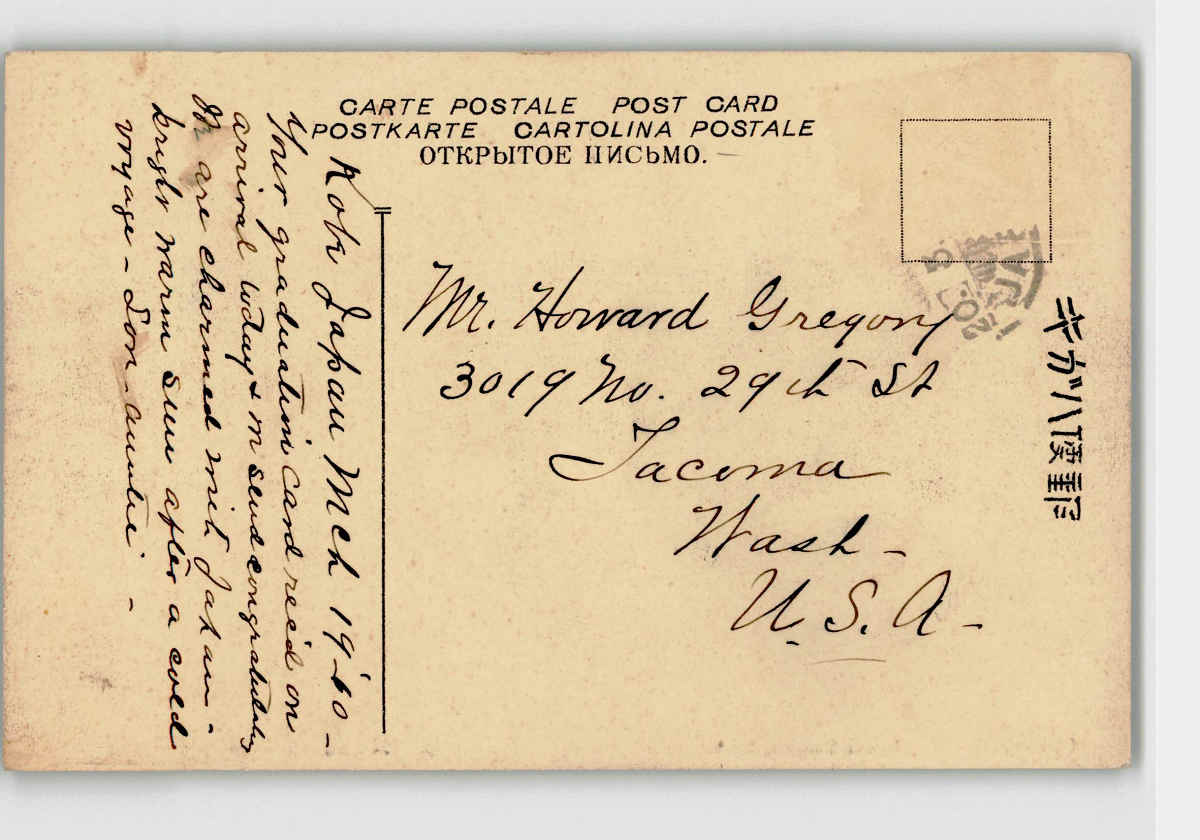 CARTE POSTALE POST CARD
POSTKARTE CARTOLINA POSTALE
ОТКРЫТОЕ ПИСЬМО.
Kobe Japan Mch 19'10 -
Your graduation card rec'd on
arrival today & we send congratulations
We are charmed with Japan -
bright warm sun after a cold
voyage - Lon. Auntie -
Mr. Howard Gregory
3019 No. 29th St
Tacoma
Wash -
U. S. A -
キガハ